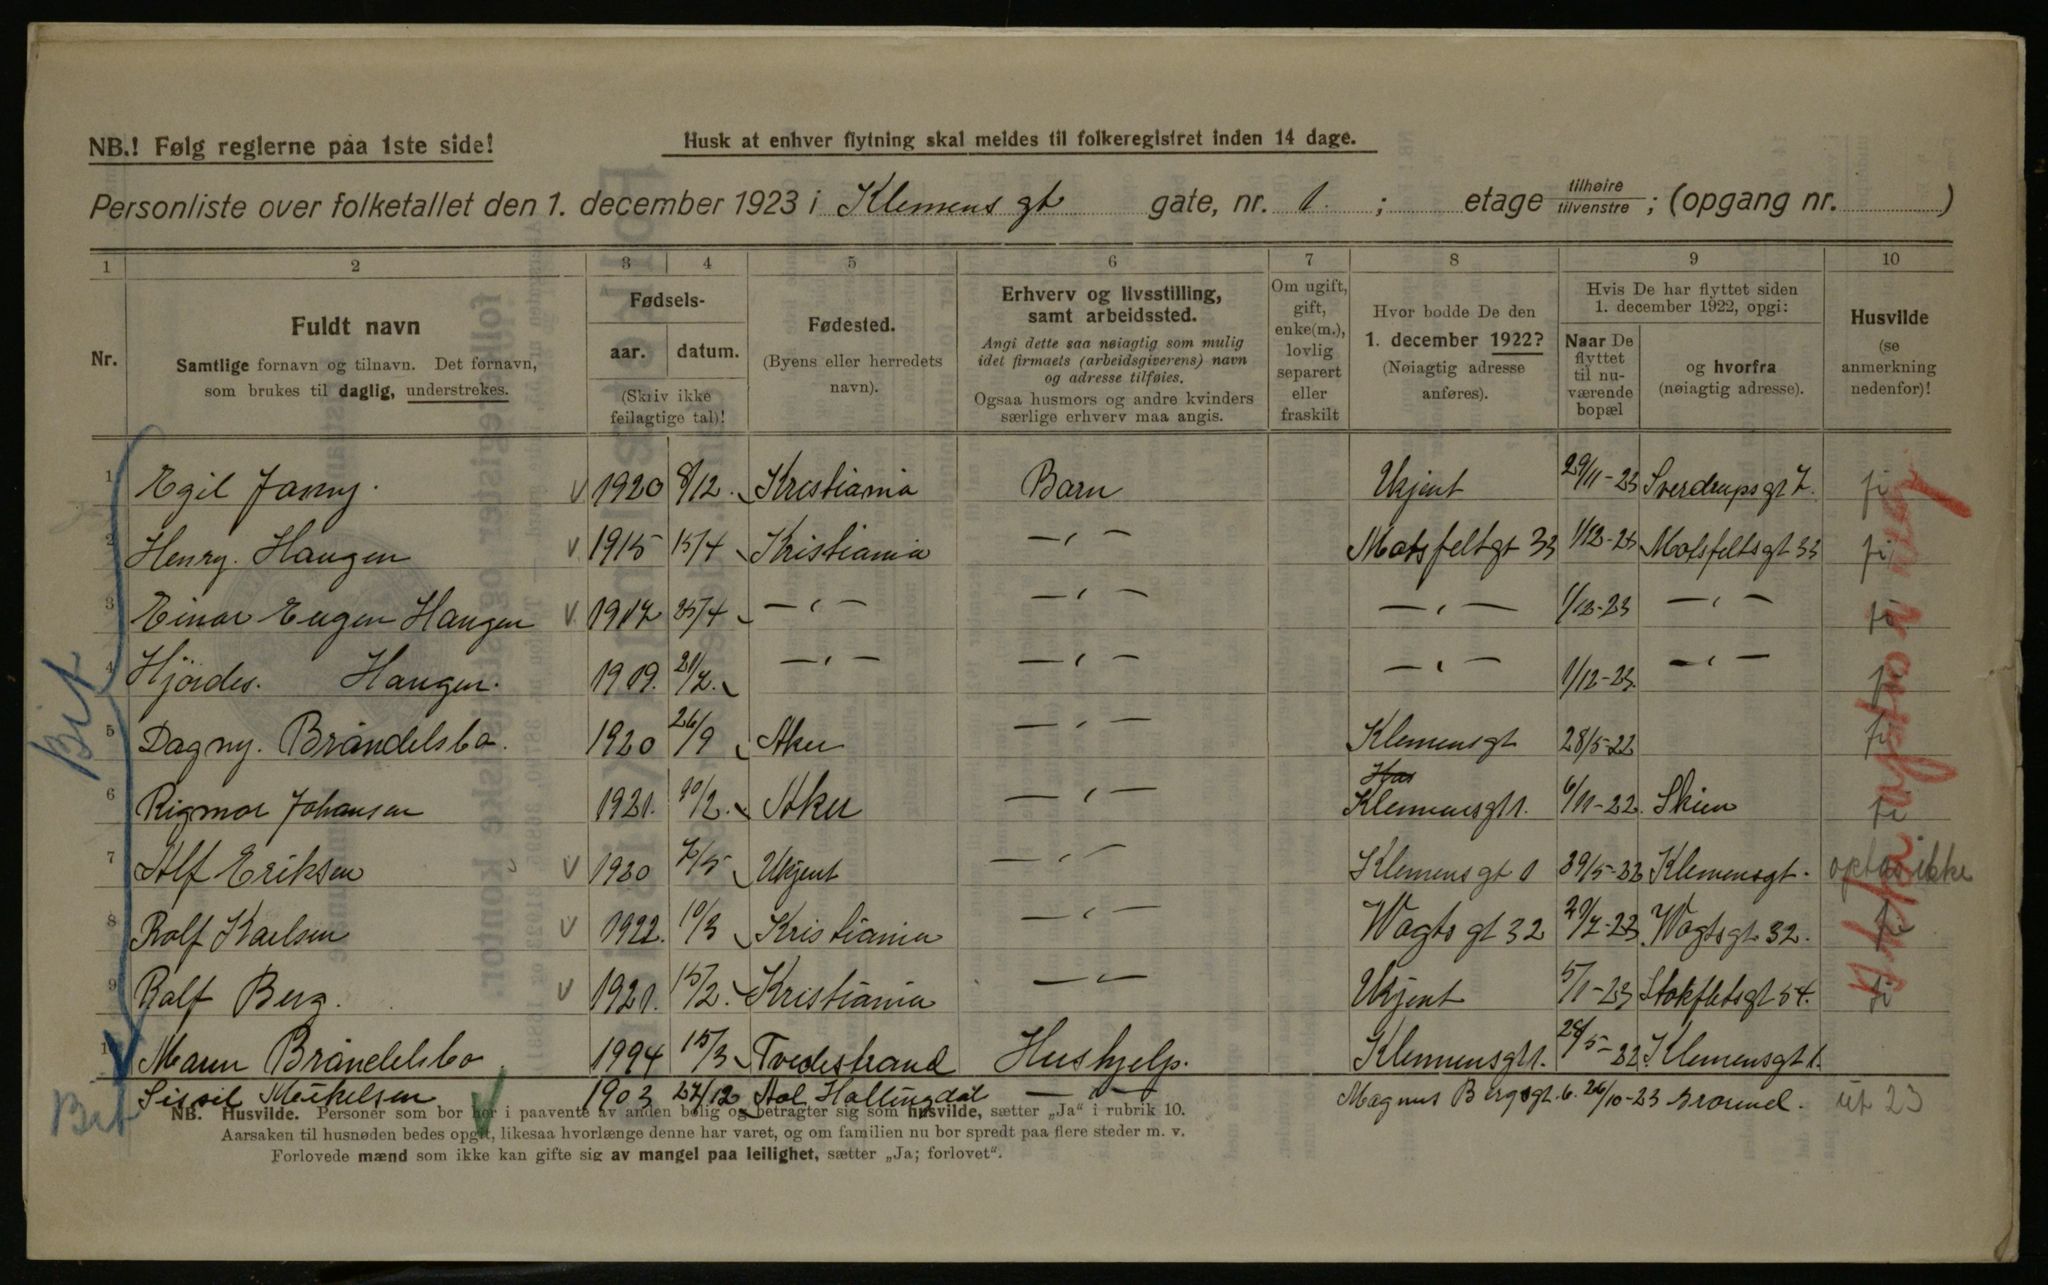 NB.! Følg reglerne paa 1ste side!
Husk at enhver flytning skal meldes til folkeregistret inden 14 dage.
Personliste over folketallet den 1. december 1923 i Klemens gt gate, nr. 1. ; etage tilhøire tilvenstre ; (opgang nr. )
1 2 3 4 5 6 7 8 9 10
Nr.
Fuldt navn
Samtlige fornavn og tilnavn. Det fornavn,
som brukes til daglig, understrekes.
Fødsels-
aar. datum.
(Skriv ikke
feilagtige tal)!
Fødested.
(Byens eller herredets
navn).
Erhverv og livsstilling,
samt arbeidssted.
Angi dette saa nøiagtig som mulig
idet firmaets (arbeidsgiverens) navn
og adresse tilføies.
Ogsaa husmors og andre kvinders
særlige erhverv maa angis.
Om ugift,
gift,
enke(m.),
lovlig
separert
eller
fraskilt
Hvor bodde De den
1. december 1922?
(Nøiagtig adresse
anføres).
Hvis De har flyttet siden
1. december 1922, opgi:
Naar De
flyttet
til nu-
værende
bopæl
og hvorfra
(nøiagtig adresse).
Husvilde
(se
anmerkning
nedenfor)!
1 Egil Janny. 1920 8/12. Kristiania Barn Ukjent 29/11-23 Sverdrupsgt 7. ji
2 Henry. Haugen 1915 15/4 Kristiania —"— Motsfeltgt 33 1/12-23 Motsfeltsgt 33 ji
3 Einar Eugen Haugen 1917 25/4 —"— —"— —"— 1/12-23 —"—
4 Hjördes. Haugen. 1919. 21/7. —"— —"— —"— 1/12-23. —"—
5 Dagny. Bråndelsbo. 1920 26/9 Aker —"— Klemensgt 28/5-22 ji
6 Rigmor Johansen 1921. 10/2. Aker —"— Klemensgt 1. 6/11-22. Skien ji
7 Alf Eriksen 1920 Ukjent —"— Klemensgt 1 29/5-22 Klemensgt. ikke
8 Rolf Karlsen 1922. 10/3 Kristiania —"— Vogts gt 32 20/7-23 Vogtsgt 32.
9 Rolf Berg. 1921. 15/2. Kristiania —"— Ukjent 5/1-23 Stokfletsgt 54. ji
10 Maren Bråndelsbo. 1994 15/3 Tvedestrand Hushjelp. Klemensgt 1. 28/5-22. Klemensgt 1.
Sissil Meikelsen 1903 27/12 Aal Hallingdal —"— Magnus Bergsgt. 6. 26/10-23 ut 23
Bit
Bet
NB. Husvilde. Personer som bor her i paavente av anden bolig og betragter sig som husvilde, sætter „Ja" i rubrik 10.
Aarsaken til husnøden bedes opgit, likesaa hvorlænge denne har varet, og om familien nu bor spredt paa flere steder m. v.
Forlovede mænd som ikke kan gifte sig av mangel paa leilighet, sætter „Ja; forlovet".